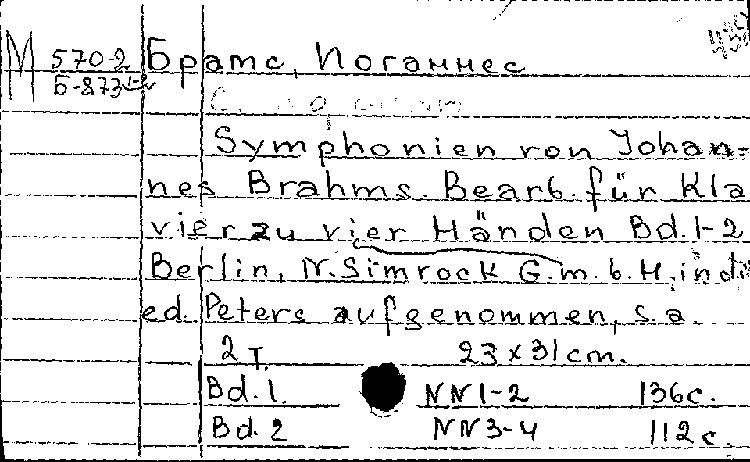 М 570-2 Брамс, Иоганнес
Б-873
Symphonien von Johan=
nes Brahms. Bearb. für Kla
vier zu vier Händen Bd. 1-2
Berlin, N. Simrock G.m.b.H, in di
ed. Peters aufgenommen, s.a.
2 т. 23 x 31 cm.
Bd. 1. NN 1-2 136 c.
Bd. 2 NN 3-4 112 c.